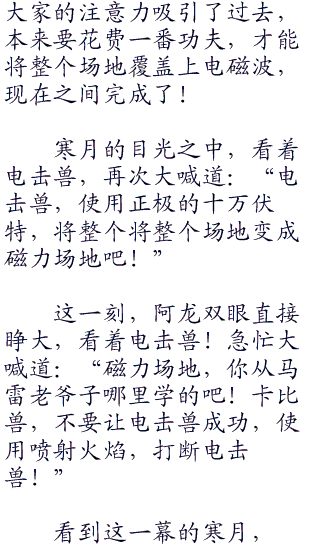 大家的注意力吸引了过去，
本来要花费一番功夫，才能
将整个场地覆盖上电磁波，
现在之间完成了！
寒月的目光之中，看着
电击兽，再次大喊道：“电
击兽，使用正极的十万伏
特，将整个将整个场地变成
磁力场地吧！”
这一刻，阿龙双眼直接
睁大，看着电击兽！急忙大
喊道：“磁力场地，你从马
雷老爷子哪里学的吧！卡比
兽，不要让电击兽成功，使
用喷射火焰，打断电击
兽！”
看到这一幕的寒月，